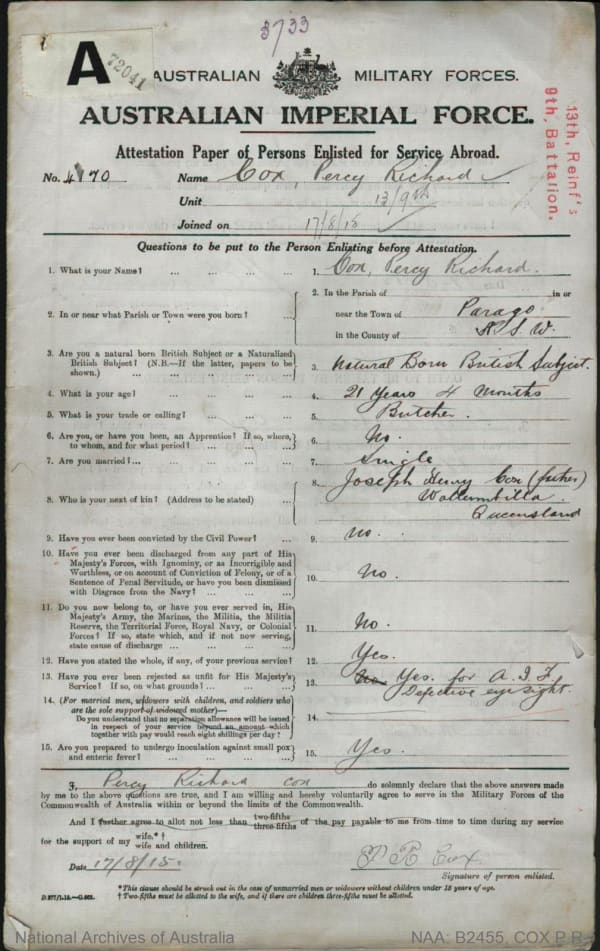 3733
A 72041
AUSTRALIAN MILITARY FORCES.
AUSTRALIAN IMPERIAL FORCE.
13th, Reinf's
9th, Battalion.
Attestation Paper of Persons Enlisted for Service Abroad.
No. 4170 Name Cox, Percy Richard
Unit 13/9th
Joined on 17/8/15
Questions to be put to the Person Enlisting before Attestation.
1. What is your Name? ... ... ... ... 1. Cox, Percy Richard.
2. In or near what Parish or Town were you born? ... 2. In the Parish of in or
near the Town of Parago
in the County of N.S.W.
3. Are you a natural born British Subject or a Naturalized
British Subject? (N.B.—If the latter, papers to be
shown.) ... ... ... ... ... 3. Natural Born British Subject.
4. What is your age? ... ... ... ... 4. 21 Years 4 Months
5. What is your trade or calling? ... ... ... 5. Butcher.
6. Are you, or have you been, an Apprentice? If so, where,
to whom, and for what period? ... ... ... 6. No.
7. Are you married?... ... ... ... ... 7. Single
8. Who is your next of kin? (Address to be stated) ... 8. Joseph Henry Cox (father)
Wallumbilla.
Queensland
9. Have you ever been convicted by the Civil Power? ... 9. No.
10. Have you ever been discharged from any part of His
Majesty's Forces, with Ignominy, or as Incorrigible and
Worthless, or on account of Conviction of Felony, or of a
Sentence of Penal Servitude, or have you been dismissed
with Disgrace from the Navy? ... ... ... 10. No.
11. Do you now belong to, or have you ever served in, His
Majesty's Army, the Marines, the Militia, the Militia
Reserve, the Territorial Force, Royal Navy, or Colonial
Forces? If so, state which, and if not now serving,
state cause of discharge ... ... ... ... 11. No.
12. Have you stated the whole, if any, of your previous service? 12. Yes.
13. Have you ever been rejected as unfit for His Majesty's
Service? If so, on what grounds? ... ... ... 13. No. Yes. for A.I.F.
Defective eyesight.
14. (For married men, widowers with children, and soldiers who
are the sole support of widowed mother)—
Do you understand that no separation allowance will be issued
in respect of your service beyond an amount which
together with pay would reach eight shillings per day? 14.
15. Are you prepared to undergo inoculation against small pox
and enteric fever? ... ... ... ... 15. Yes.
I, Percy Richard Cox do solemnly declare that the above answers made
by me to the above questions are true, and I am willing and hereby voluntarily agree to serve in the Military Forces of the
Commonwealth of Australia within or beyond the limits of the Commonwealth.
And I further agree to allot not less than two-fifths three-fifths of the pay payable to me from time to time during my service
for the support of my wife.* † wife and children.
Date 17/8/15. P R Cox
Signature of person enlisted.
*This clause should be struck out in the case of unmarried men or widowers without children under 18 years of age.
† Two-fifths must be allotted to the wife, and if there are children three-fifths must be allotted.
National Archives of Australia NAA: B2455, COX P R